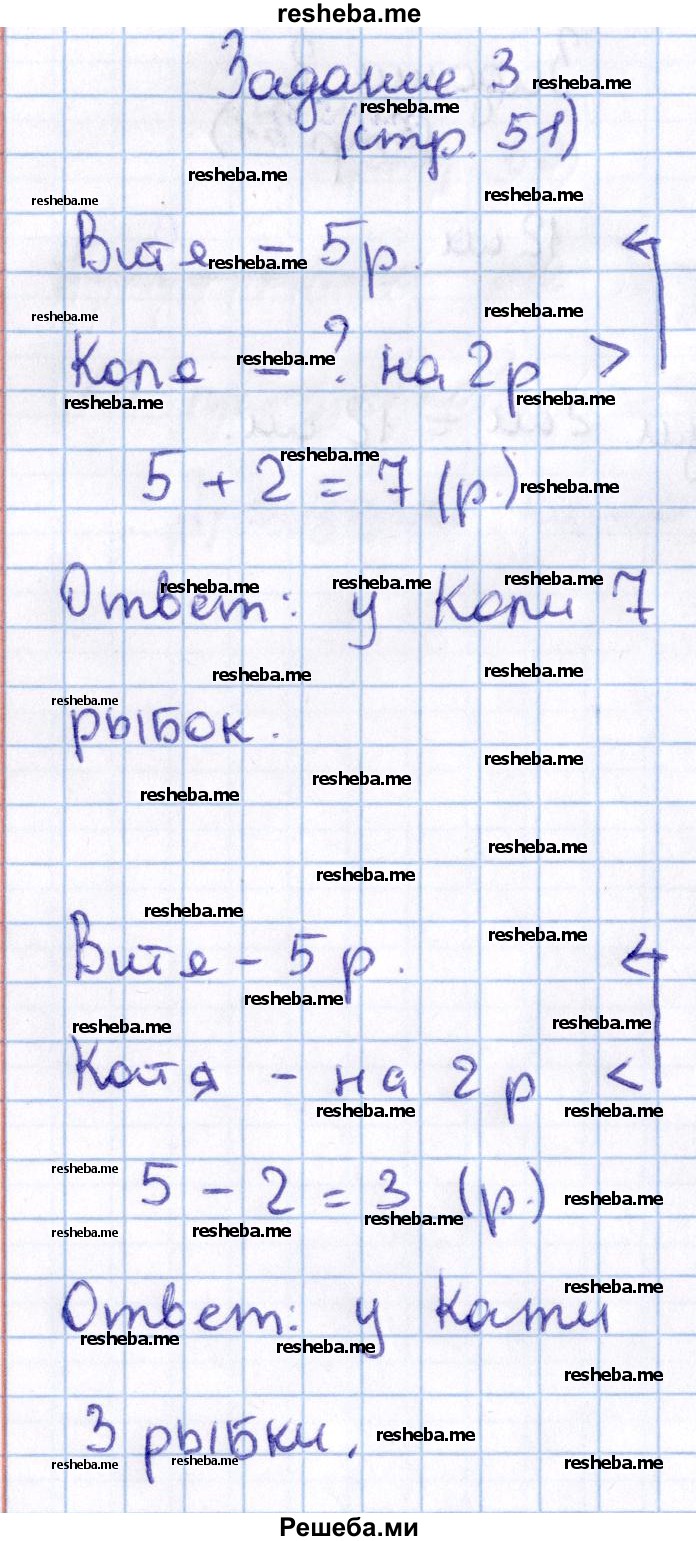 resheba.me
Задание 3
(стр. 51)
Витя – 5 р.
Коля – ? на 2 р >
5 + 2 = 7 (р.)
Ответ: у Коли 7
рыбок.
Витя – 5 р.
Катя – на 2 р <
5 – 2 = 3 (р.)
Ответ: у Кати
3 рыбки.
Решеба.ми